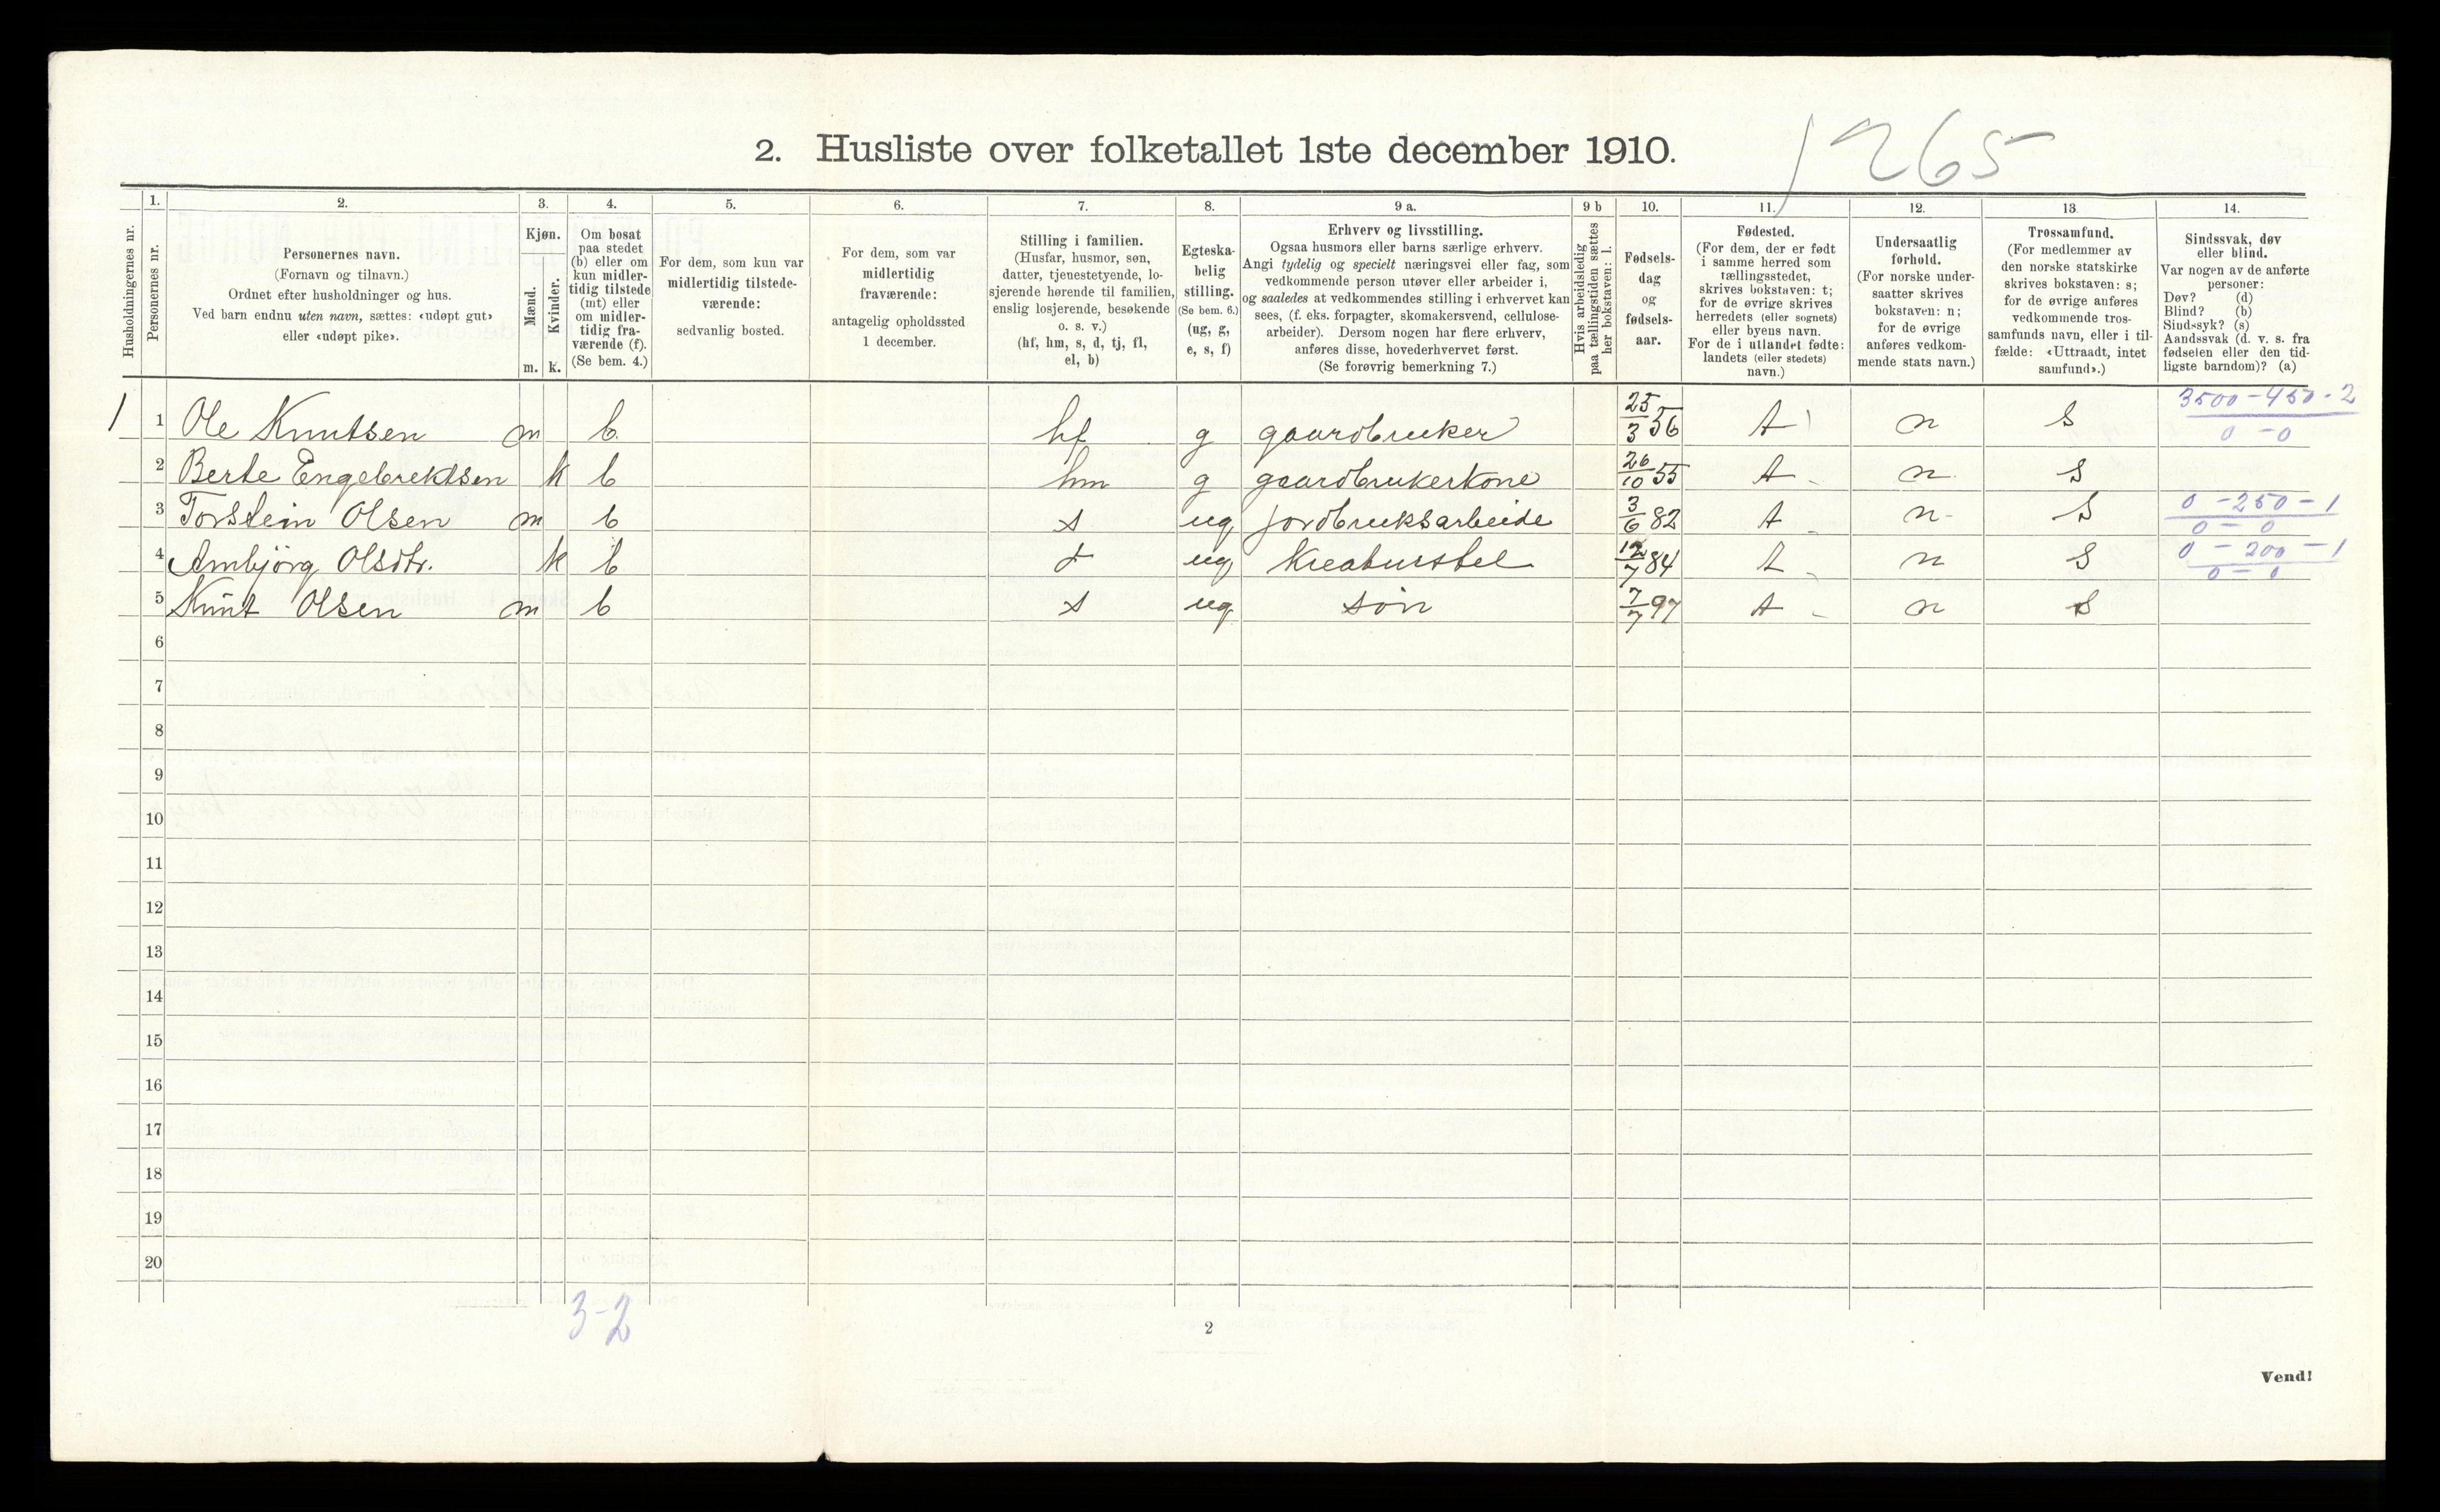 1265
2. Husliste over folketallet 1ste december 1910.
Husholdningernes nr.
1.
Personernes nr.
2.
Personernes navn.
(Fornavn og tilnavn.)
Ordnet efter husholdninger og hus.
Ved barn endnu uten navn, sættes: «udøpt gut»
eller «udøpt pike».
3.
Kjøn.
Mænd.
Kvinder.
m. k.
4.
Om bosat
paa stedet
(b) eller om
kun midler-
tidig tilstede
(mt) eller
om midler-
tidig fra-
værende (f).
(Se bem. 4.)
5.
For dem, som kun var
midlertidig tilstede-
værende:
sedvanlig bosted.
6.
For dem, som var
midlertidig
fraværende:
antagelig opholdssted
1 december.
7.
Stilling i familien.
(Husfar, husmor, søn,
datter, tjenestetyende, lo-
sjerende hørende til familien,
enslig losjerende, besøkende
o. s. v.)
(hf, hm, s, d, tj, fl,
el, b)
8.
Egteska-
belig
stilling.
(Se bem. 6.)
(ug, g,
e, s, f)
9 a.
Erhverv og livsstilling.
Ogsaa husmors eller barns særlige erhverv.
Angi tydelig og specielt næringsvei eller fag, som
vedkommende person utøver eller arbeider i,
og saaledes at vedkommendes stilling i erhvervet kan
sees, (f. eks. forpagter, skomakersvend, cellulose-
arbeider). Dersom nogen har flere erhverv,
anføres disse, hovederhvervet først.
(Se forøvrig bemerkning 7.)
9 b
Hvis arbeidsledig
paa tællingstiden sættes
her bokstaven: l.
10.
Fødsels-
dag
og
fødsels-
aar.
11.
Fødested.
(For dem, der er født
i samme herred som
tællingsstedet,
skrives bokstaven: t;
for de øvrige skrives
herredets (eller sognets)
eller byens navn.
For de i utlandet fødte:
landets (eller stedets)
navn.)
12.
Undersaatlig
forhold.
(For norske under-
saatter skrives
bokstaven: n;
for de øvrige
anføres vedkom-
mende stats navn.)
13.
Trossamfund.
(For medlemmer av
den norske statskirke
skrives bokstaven: s;
for de øvrige anføres
vedkommende tros-
samfunds navn, eller i til-
fælde: «Uttraadt, intet
samfund».)
14.
Sindssvak, døv
eller blind.
Var nogen av de anførte
personer:
Døv? (d)
Blind? (b)
Sindssyk? (s)
Aandssvak (d. v. s. fra
fødselen eller den tid-
ligste barndom)? (a)
1 1 Ole Knutsen m b hf g gaardbruker 25/3 56 t n s 3500-450-2 0-0
2 Berte Engebrektsen k b hm g gaardbrukerkone 26/10 55 t n s
3 Torstein Olsen m b s ug jordbruksarbeide 3/6 82 t n s 0-250-1 0-0
4 Ambjörg Olsdtr. k b d ug kreaturstel 12/7 84 t n s 0-200-1 0-0
5 Knut Olsen m b s ug sön 7/7 97 t n s
6
7
8
9
10
11
12
13
14
15
16
17
18
19
20
3-2
2
Vend!